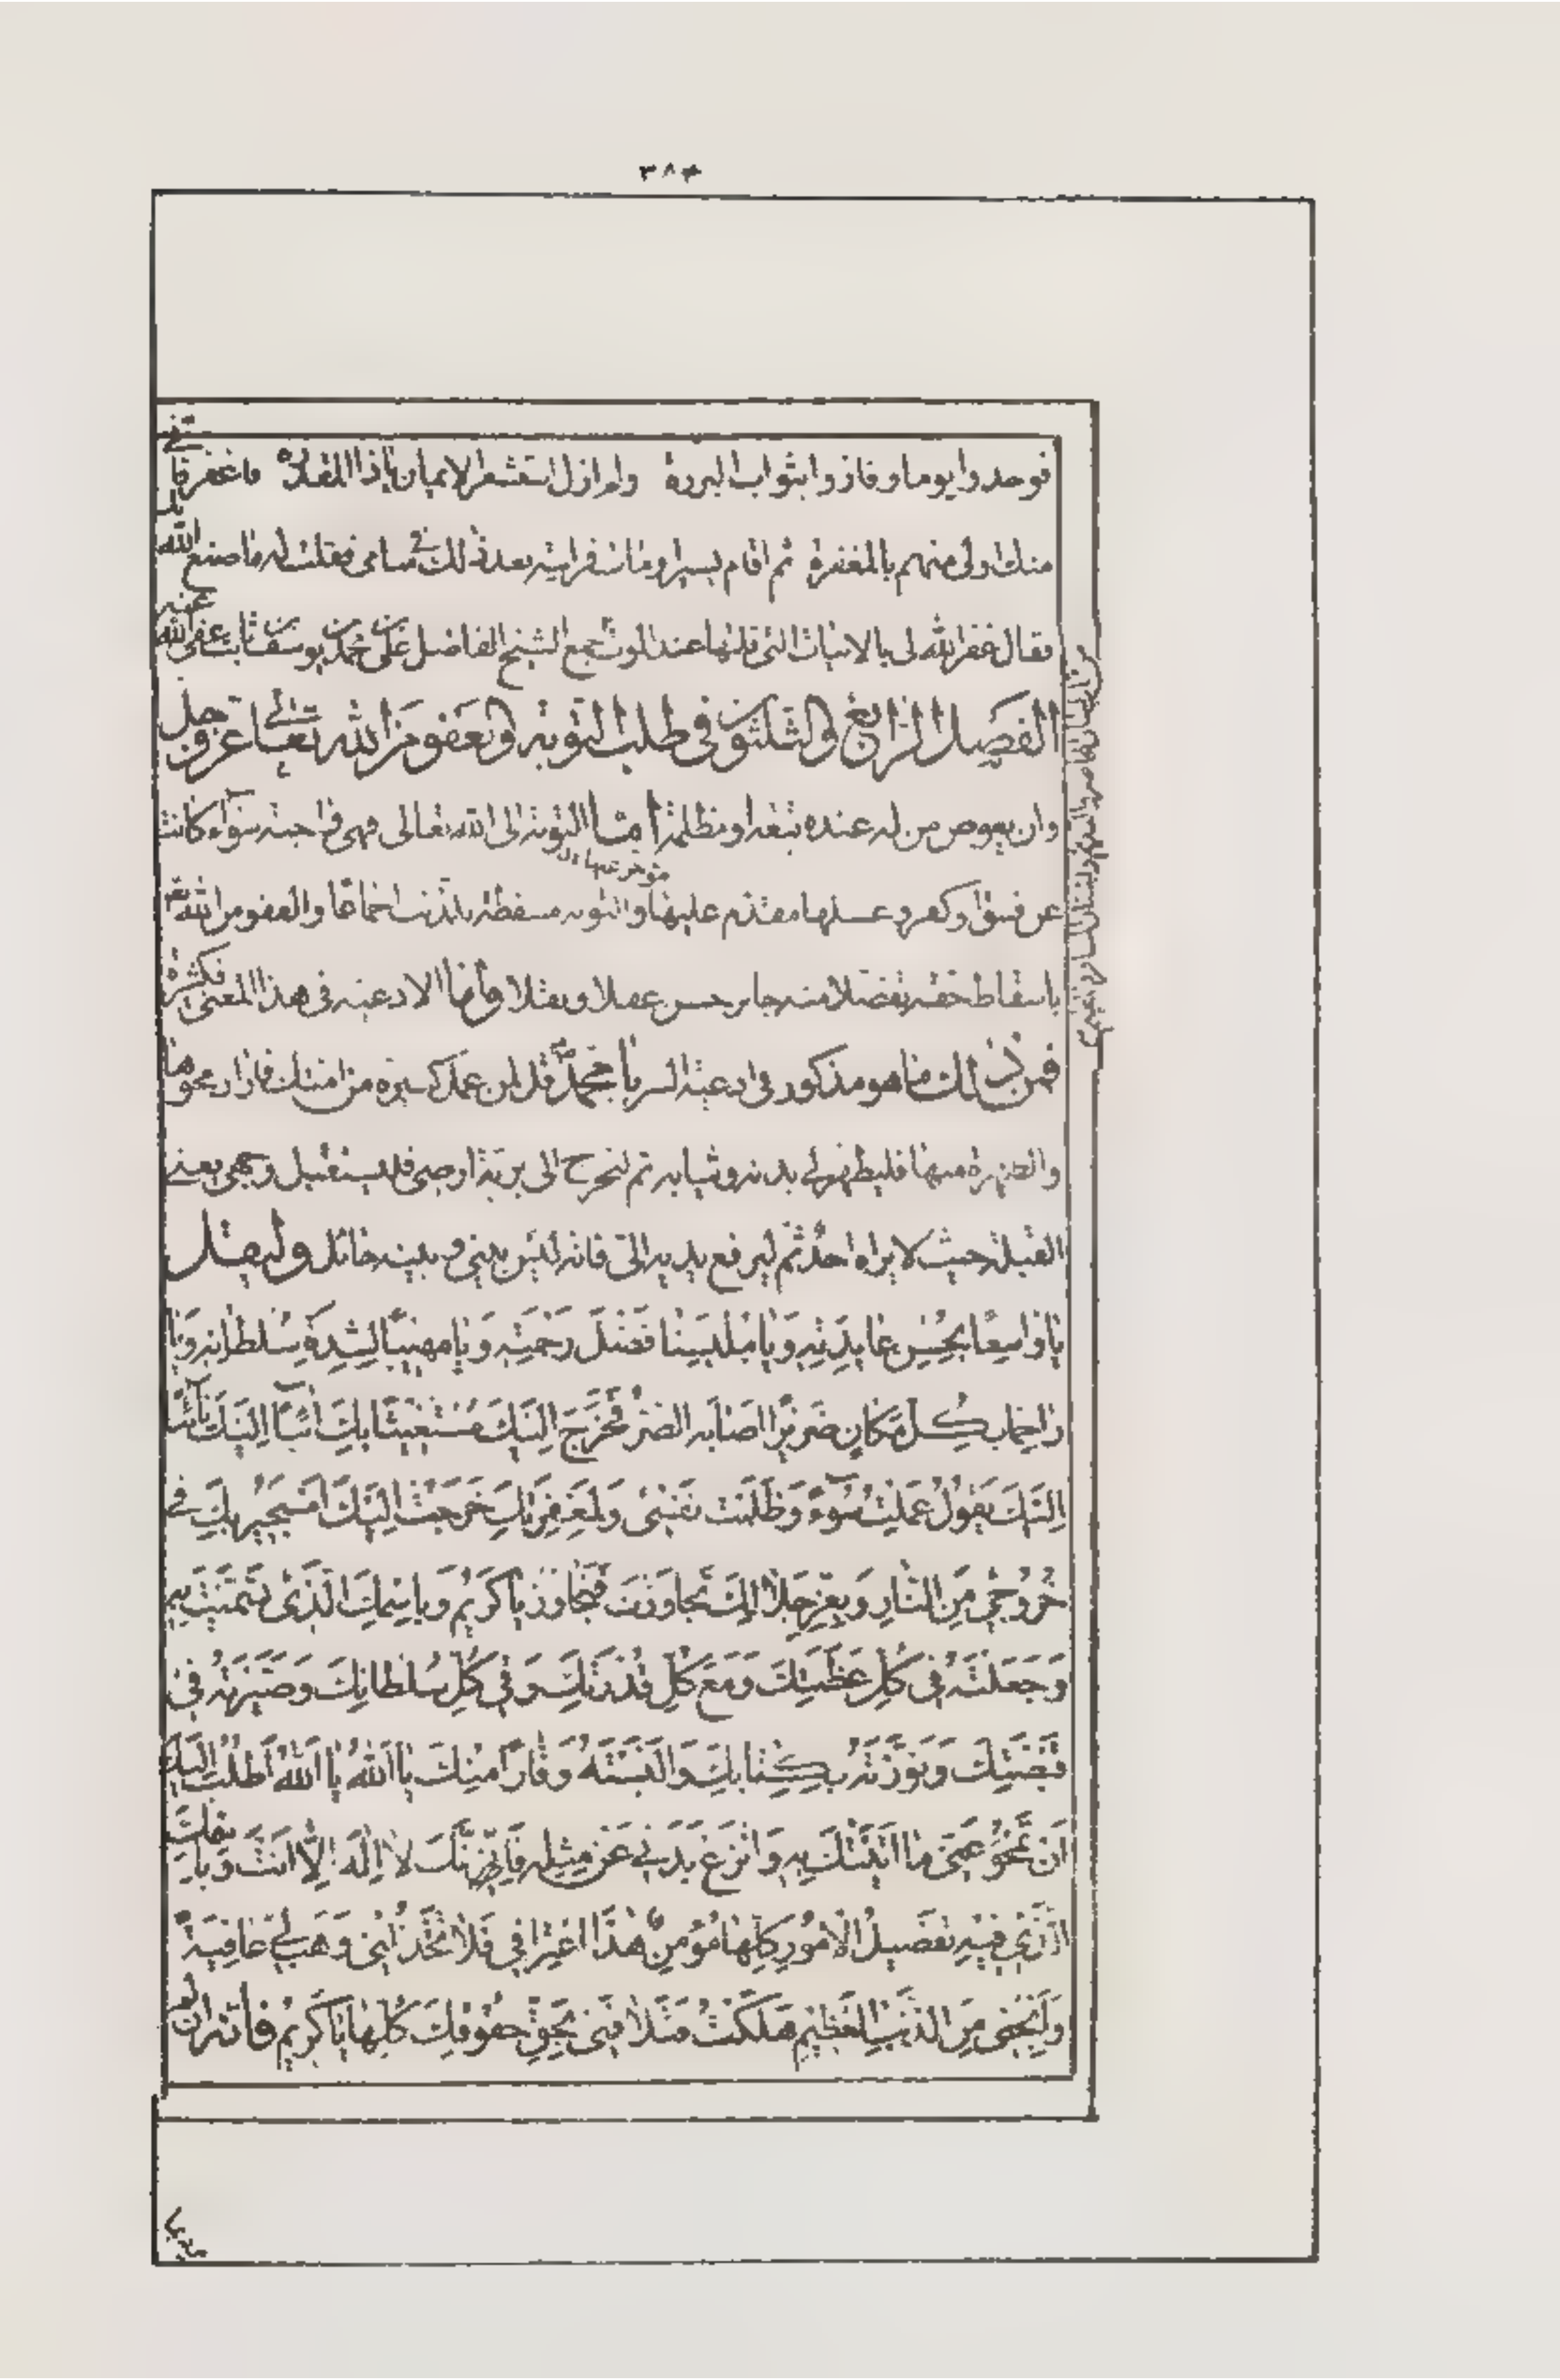 ٣٨٤
فوحدوا يوما وفازوا بثواب البررة ولم ازل استشعر الايمان ياذا المقدرة فاغفر فاقتي
منك ولى منهم بالمغفرة ثم اقام يسيرا ومات فرايته بعد ذلك في منامى فقلت له ما صنع الله بك
فقال غفر الله لى بالابيات التى قلتها عند الموت جمع الشيخ الفاضل على بن محمد بن يوسف بن ثابت عفى الله عنه
الفصل الرابع والثلثون فى طلب التوبة والعفو من الله تعالى عز وجل
وان يعوض من له عنده تبعة او مظلمة اما التوبة الى الله تعالى فهى واجبة سواء كانت
عن فسق او كفر و عليها مقدم عليها والتوبة مسقطة بالذنب اجماعا والعفو من الله تعالى
باسقاط حقه تفضلا منه جايز حسن عقلا ونقلا واما الادعية فى هذا المعنى فكثيرة
فمن ذلك ما هو مذكور فى ادعية السر يا محمد قل لمن عمل كبيرة من امتك فاراد محوها
والطهرة منها فليطهر لى بدنه وثيابه ثم ليخرج الى برية ارضى فليستقبل وجهى يعنى
القبلة حيث لا يراه احد ثم ليرفع يديه الى فانه ليس بينى وبينه حائل وليقل
يا واسعا بحسن عايدته ويا ملبسنا فضل رحمته ويا مهيبا لشدة سلطانه ويا
راحما بكل مكان ضريرا اصابه الضر فخرج اليك مستغيثا بك آئبا اليك تائبا
اليك يقول عملت سوء وظلمت نفسى ولمغفرتك خرجت اليك استجير بك فى
خروجى من النار وبعز جلالك تجاوزت فتجاوز يا كريم وباسمك الذى تسميت به
وجعلته فى كل عظمتك ومع كل قدرتك وفى كل سلطانك وصيرته فى
قبضتك ونورته بكتابك والبسته وقارا منك يا الله يا الله اطلب اليك
ان تمحو عنى ما اتيتك به وانزع بدنى عن مثله فانى بك لا اله الا انت وباسمك
الذى فيه تفصيل الامور كلها مؤمن هذا اعترافى فلا تخذلنى وهب لى عافية
وانجنى من الذنب العظيم هلكت فتلافنى بحق حقوقك كلها يا كريم فانه ان لم